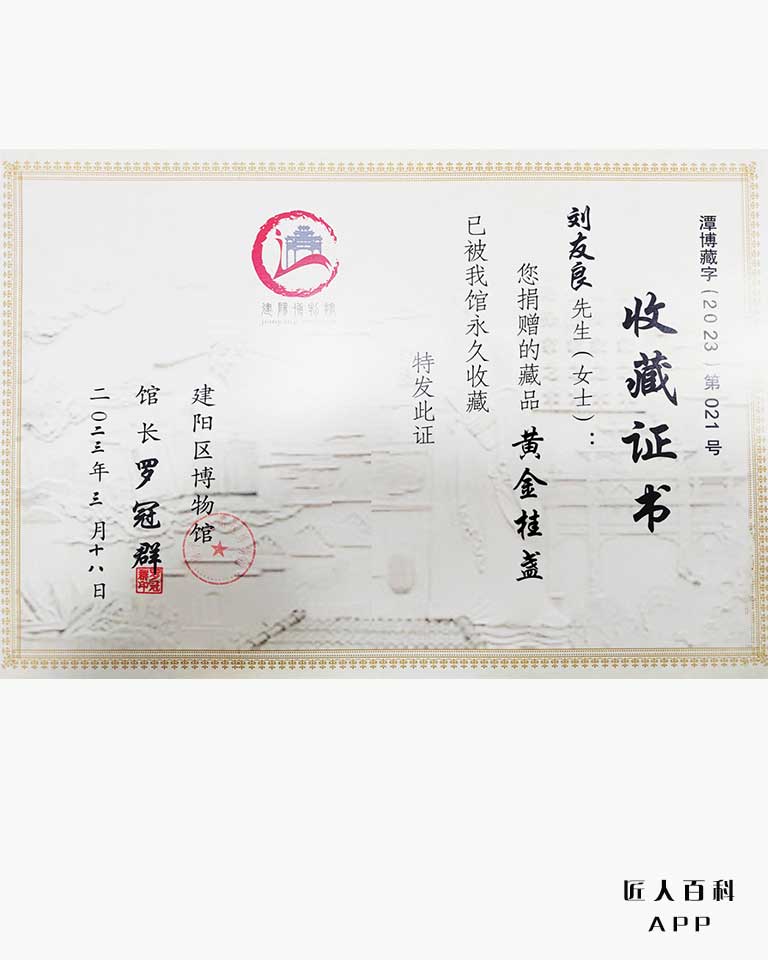 潭博藏字(2023)第021号
收藏证书
刘友良先生(女士):
您捐赠的藏品 黄金桂盏
已被我馆永久收藏
特发此证
建阳博物馆
建阳区博物馆
馆长 罗冠群
二〇二三年三月十八日
匠人百科
APP